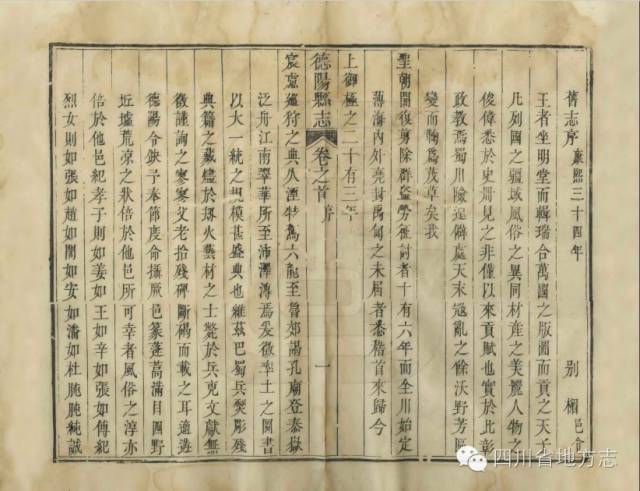 舊志序 康熙三十四年 別楣 邑令
王者坐明堂而輯瑞合萬國之版圖而貢之天子
凡列國之疆域風俗之異同材產之美麗人物之
俊偉悉於史冊見之非僅以來貢賦也實於此彰
政教焉蜀川險遠僻處天末寇亂之餘沃野芳區
變而鞠爲茂草矣我
聖朝開復剪除群盜勞征討者十有六年而全川始定
薄海內外堯封禹甸之未屆者悉稽首來歸今
上御極之二十有三年
德陽縣志 卷之首 序 一
宸慮廵狩之典久湮特駕六龍至魯郊謁孔廟登泰嶽
泛舟江南翠華所至沛澤溥焉爰徵率土之圖書
以大一統之規模甚盛典也維茲巴蜀兵燹彫殘
典籍之藏燼於烽火藝材之士斃於兵克文獻無
徵謹詢之寥寥父老拾殘碑斷碣而載之耳適逰
德陽令缺予奉節度命攝厥邑蓁蓬蒿滿目四野
坵墟荒凉之狀倍於他邑所可幸者風俗之淳亦
倍於他邑紀孝子則如姜如王如辛如張如傅紀
烈女則如張如趙如閻如安如潘如杜肫肫純誠
四川省地方志